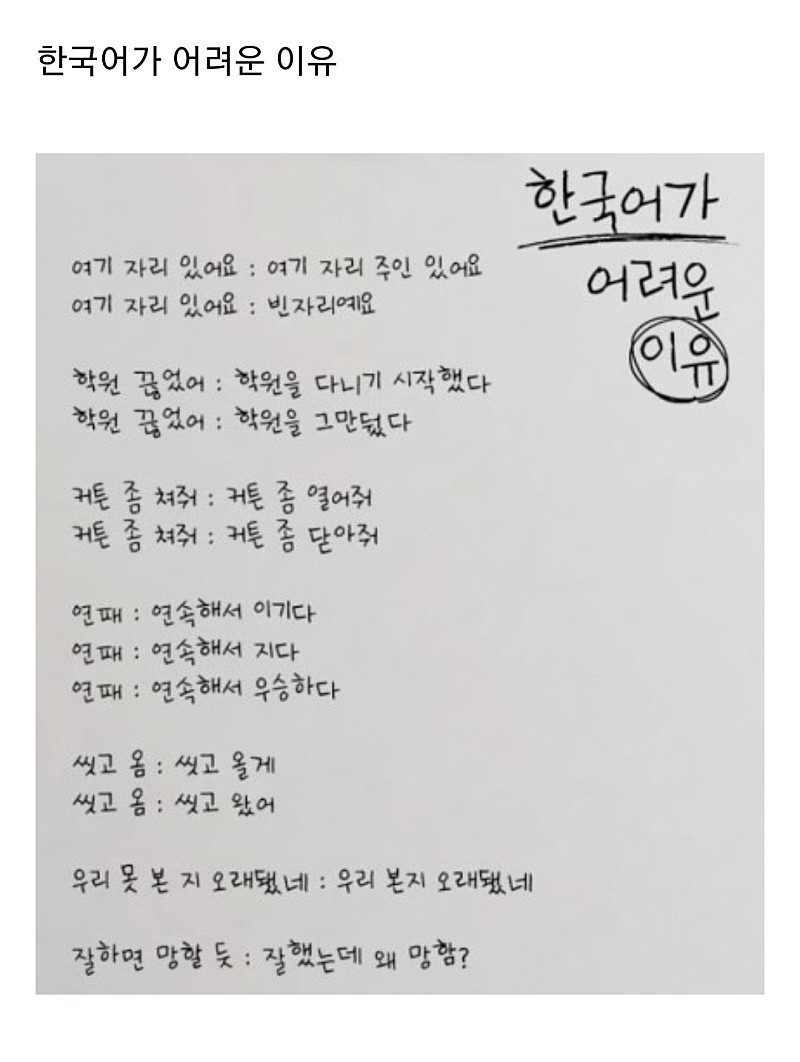 한국어가 어려운 이유
한국어가
어려운
이유
여기 자리 있어요 : 여기 자리 주인 있어요
여기 자리 있어요 : 빈자리예요
학원 끊었어 : 학원을 다니기 시작했다
학원 끊었어 : 학원을 그만뒀다
커튼 좀 쳐줘 : 커튼 좀 열어줘
커튼 좀 쳐줘 : 커튼 좀 닫아줘
연패 : 연속해서 이기다
연패 : 연속해서 지다
연패 : 연속해서 우승하다
씻고 옴 : 씻고 올게
씻고 옴 : 씻고 왔어
우리 못 본 지 오래됐네 : 우리 본지 오래됐네
잘하면 망할 듯 : 잘했는데 왜 망함?